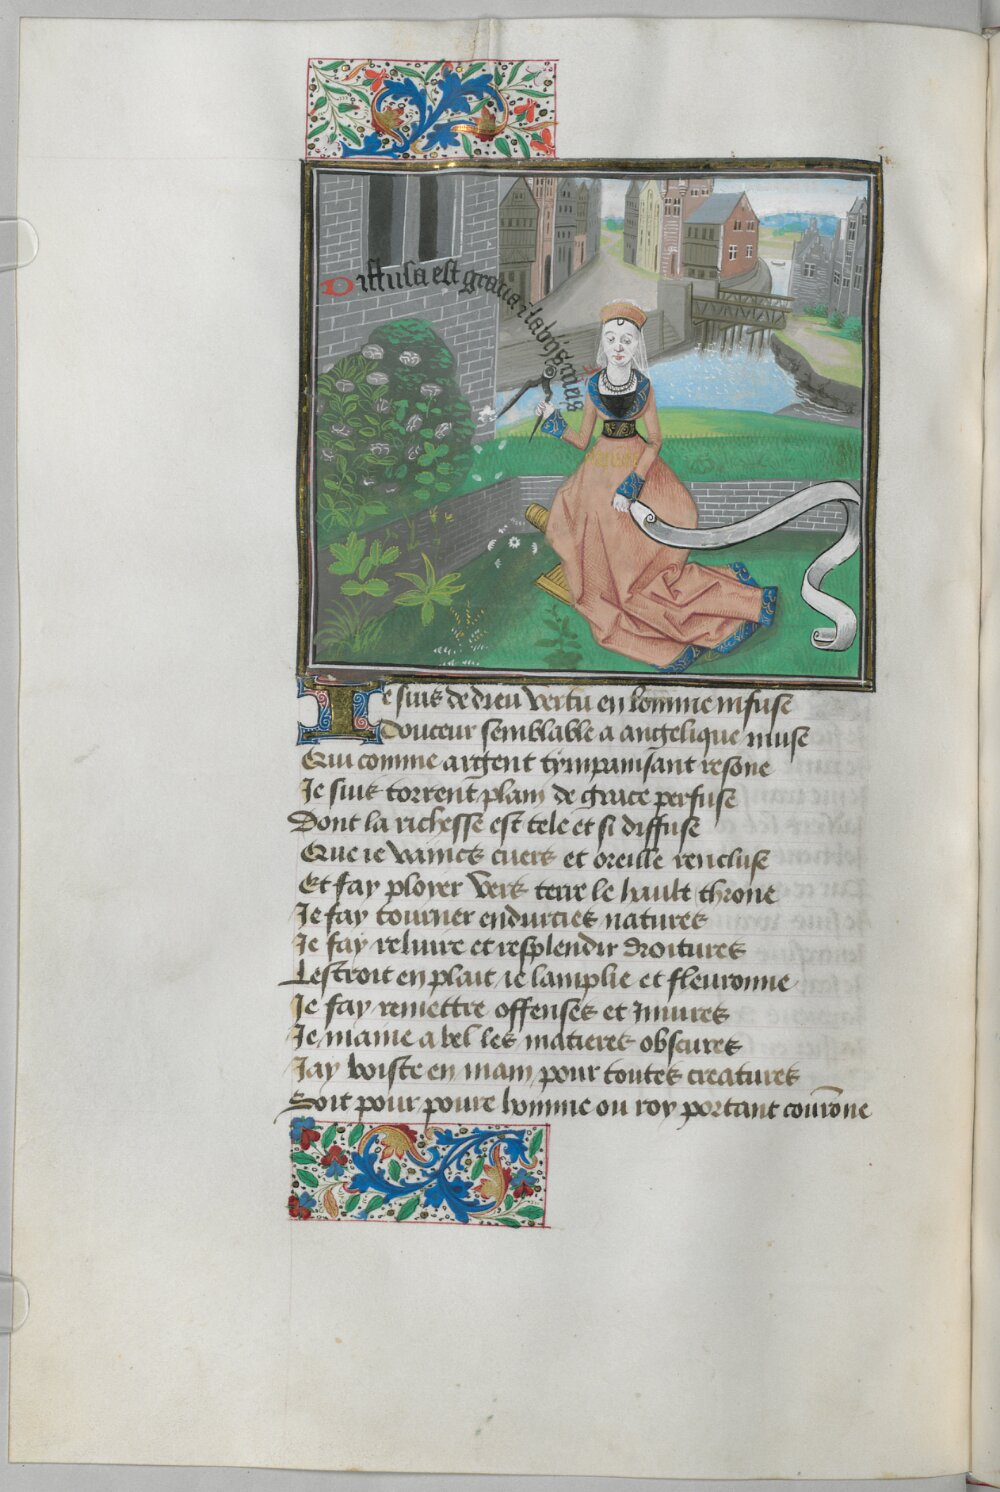 Diffusa est gracia i labijs meis
Je suis de dieu vertu en homme infuse
Douceur semblable a angelique muse
Qui comme argent tympanisant resone
Je suis torrent plain de grace perfuse
Dont la richesse est tele et si diffuse
Que ie vaincs cuers et oreille rencluse
Et fay ployer vers terre le hault throne
Je fay tourner endurcies natures
Je fay reluire et resplendir droitures
Lestroit en plait ie lamplie et fleuronne
Je fay remettre offenses et iniures
Je maine a bel les matieres obscures
Jay boiste en main pour toutes creatures
Soit pour poure homme ou roy portant courone